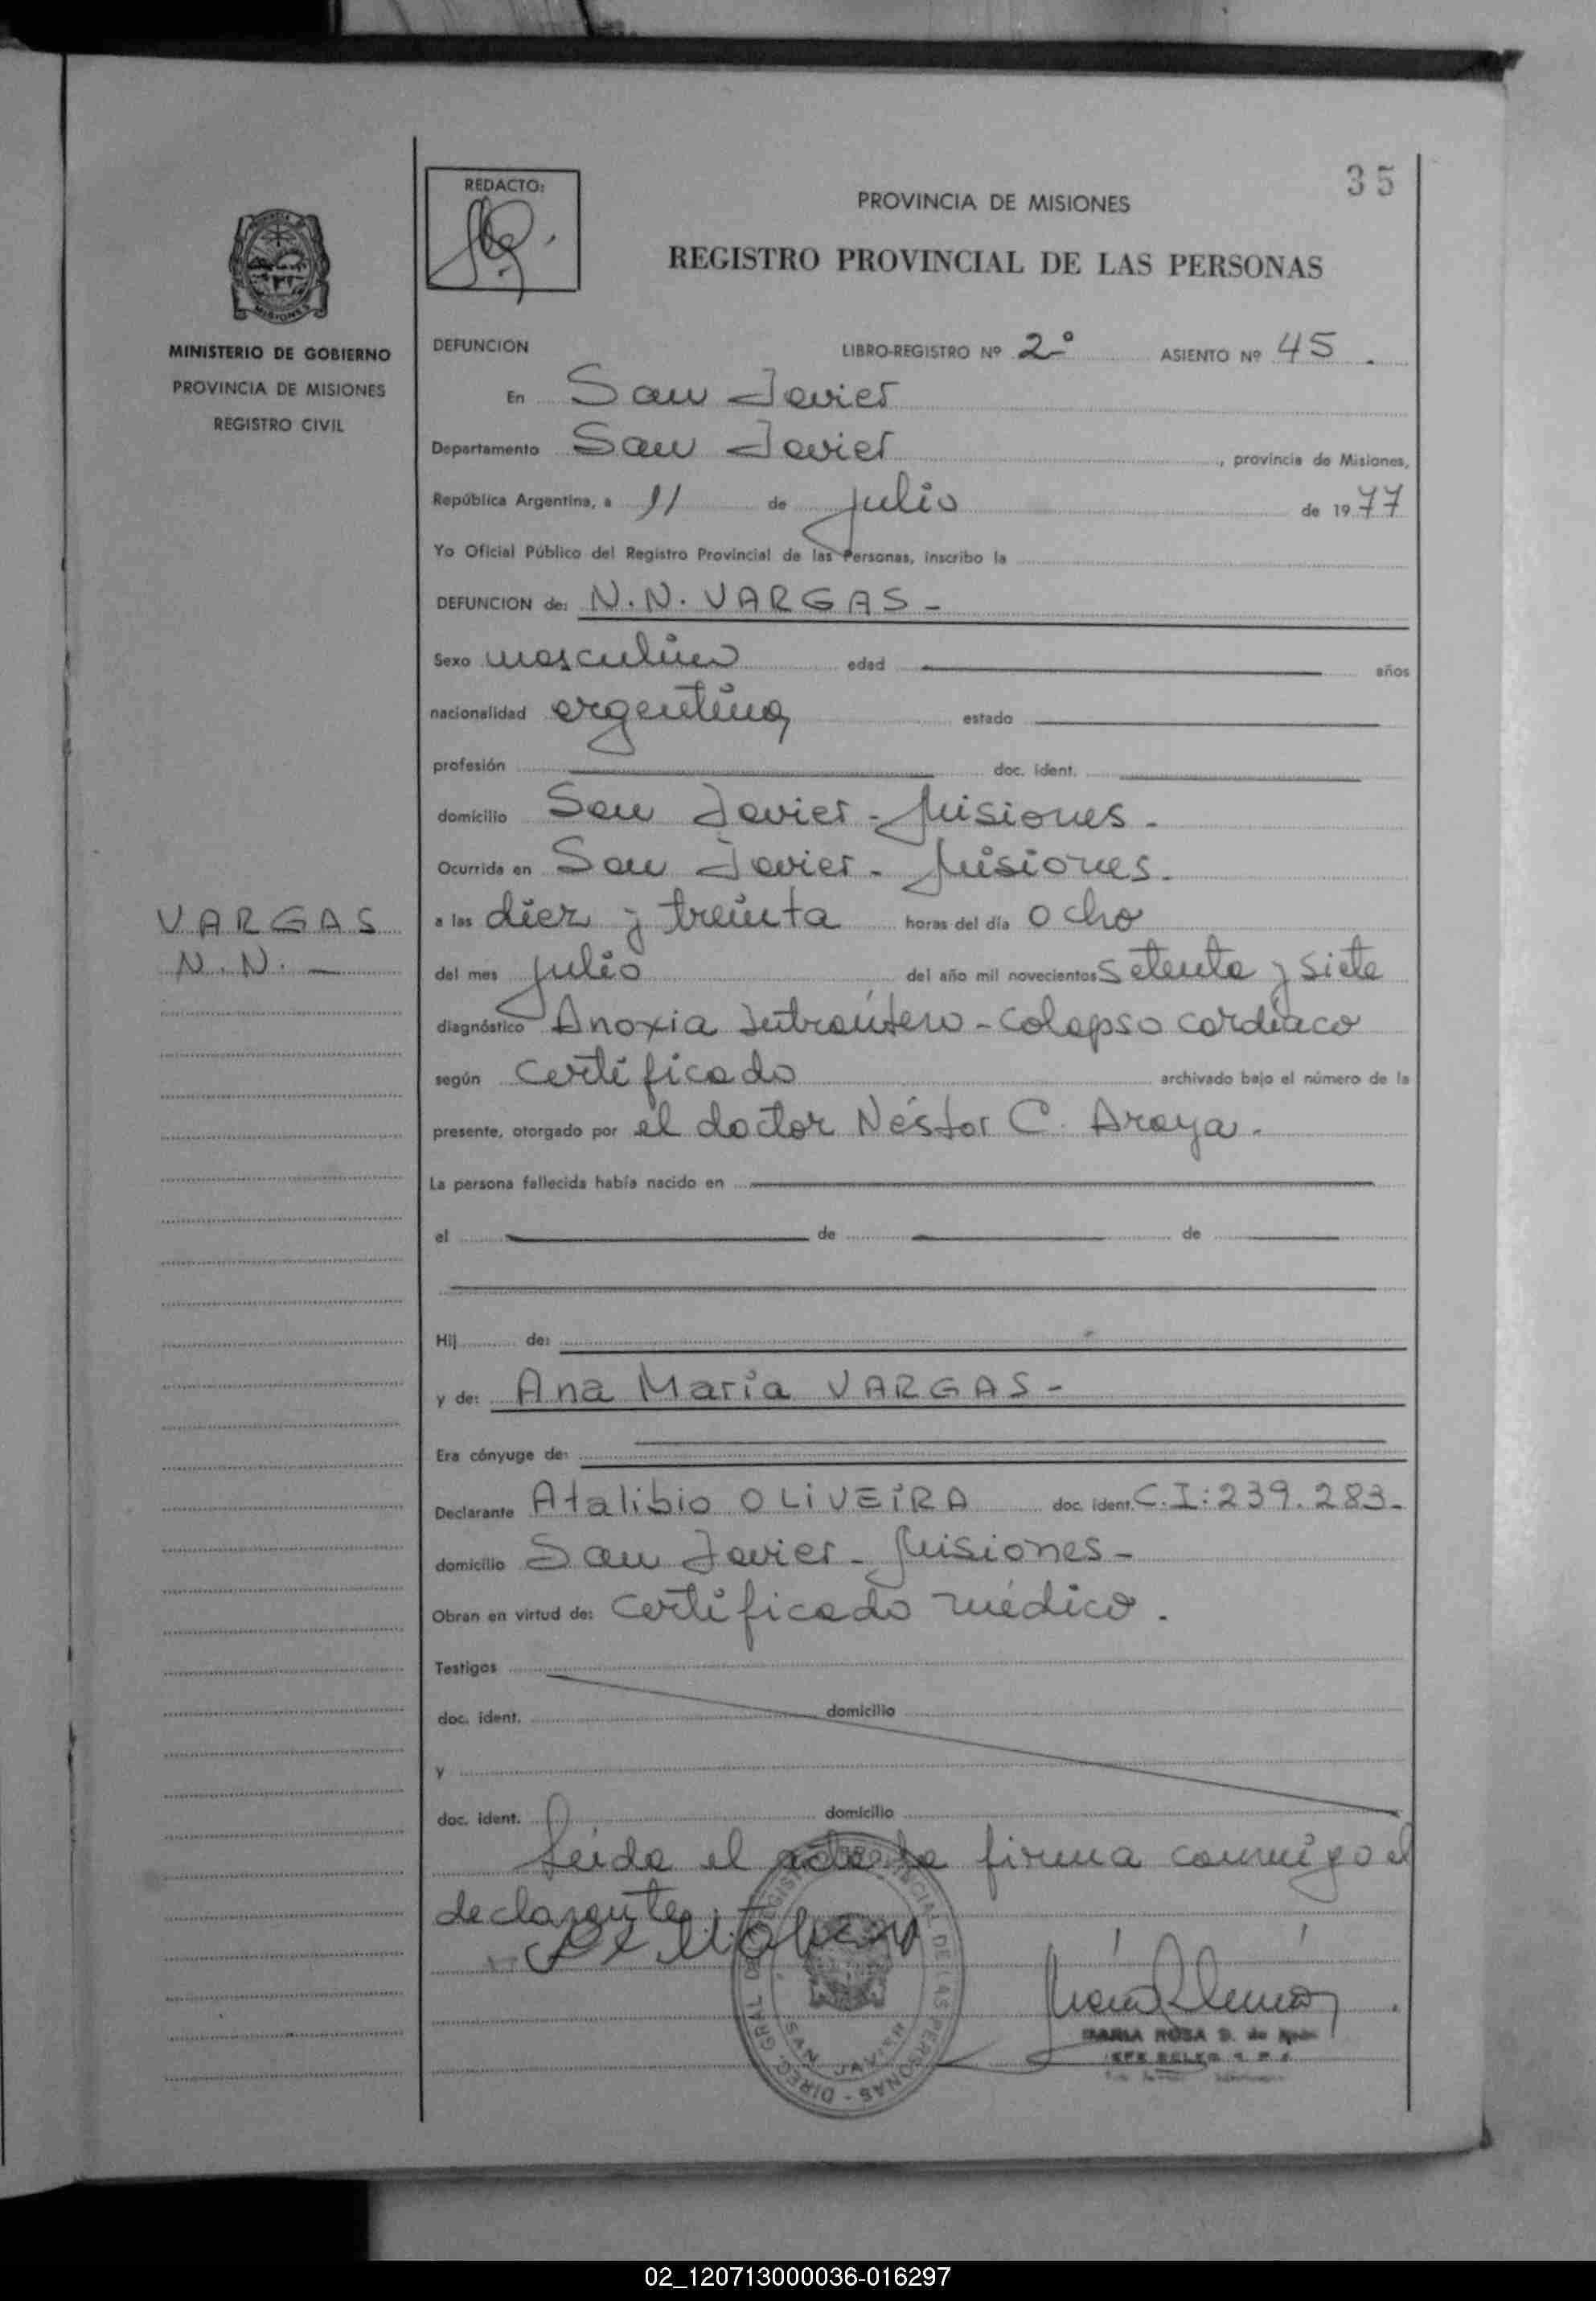 35
REDACTO:
PROVINCIA DE MISIONES
REGISTRO PROVINCIAL DE LAS PERSONAS
MISIONES
MINISTERIO DE GOBIERNO
PROVINCIA DE MISIONES
REGISTRO CIVIL
DEFUNCION LIBRO-REGISTRO Nº 2º ASIENTO Nº 45.
En San Javier
Departamento San Javier, provincia de Misiones,
República Argentina, a 11 de julio de 1977
Yo Oficial Público del Registro Provincial de las Personas, inscribo la
DEFUNCION de: N.N. VARGAS -
Sexo masculino edad años
nacionalidad argentina estado
profesión doc. ident.
domicilio San Javier - Misiones -
Ocurrida en San Javier - Misiones -
VARGAS
N.N. -
a las diez y treinta horas del día ocho
del mes julio del año mil novecientos setenta y siete
diagnóstico Anoxia Intraútero - Colapso cardíaco
según certificado archivado bajo el número de la
presente, otorgado por el doctor Néstor C. Araya.
La persona fallecida había nacido en
el de de
Hij de:
y de: Ana María VARGAS -
Era cónyuge de:
Declarante Atalibio OLIVEIRA doc. ident. C.I: 239.283-
domicilio San Javier - Misiones -
Obran en virtud de: certificado médico.
Testigos
doc. ident. domicilio
y
doc. ident. domicilio
Leída el acta la firma conmigo el
declarante
DIREC. GRAL. DEL REGISTRO PROVINCIAL DE LAS PERSONAS -
SAN JAVIER
MARIA ROSA S. de
02_120713000036-016297